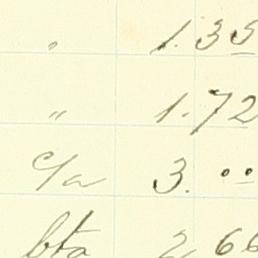 " 1.35
" 1.72
c/a 3.00
bta 2.66